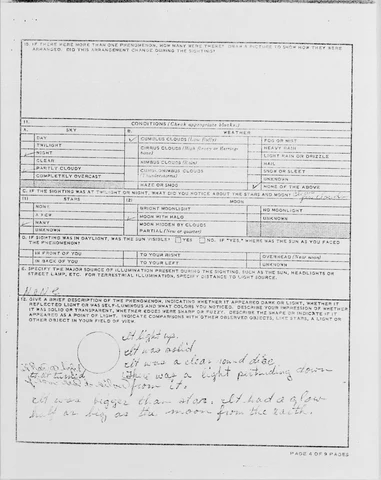 10. IF THERE WERE MORE THAN ONE PHENOMENON, HOW MANY WERE THERE? DRAW A PICTURE TO SHOW HOW THEY WERE
ARRANGED. DID THIS ARRANGEMENT CHANGE DURING THE SIGHTING?
11. CONDITIONS (Check appropriate blocks.)
A. SKY
B. WEATHER
DAY
CUMULUS CLOUDS
FOG OR MIST
TWILIGHT
CIRRUS CLOUDS
HEAVY RAIN
NIGHT
LIGHT RAIN OR DRIZZLE
CLEAR
NIMBUS CLOUDS (Rain)
HAIL
PARTLY CLOUDY
SNOW OR SLEET
COMPLETELY OVERCAST
UNKNOWN
HAZE OR SMOG
NONE OF THE ABOVE
C. IF THE SIGHTING WAS AT TWILIGHT OR NIGHT, WHAT DID YOU NOTICE ABOUT THE STARS AND MOON?
(1) STARS
(2) MOON
NONE
BRIGHT MOONLIGHT
NO MOONLIGHT
A FEW
MOON WITH HALO
UNKNOWN
MANY
MOON HIDDEN BY CLOUDS
UNKNOWN
PARTIAL (New or quarter)
D. IF SIGHTING WAS IN DAYLIGHT, WAS THE SUN VISIBLE? YES NO. IF "YES," WHERE WAS THE SUN AS YOU FACED
THE PHENOMENON?
IN FRONT OF YOU
TO YOUR RIGHT
OVERHEAD (Near noon)
IN BACK OF YOU
TO YOUR LEFT
UNKNOWN
E. SPECIFY THE MAJOR SOURCE OF ILLUMINATION PRESENT DURING THE SIGHTING, SUCH AS THE SUN, HEADLIGHTS OR
STREET LAMP, ETC. FOR TERRESTRIAL ILLUMINATION, SPECIFY DISTANCE TO LIGHT SOURCE.
None
12. GIVE A BRIEF DESCRIPTION OF THE PHENOMENON, INDICATING WHETHER IT APPEARED DARK OR LIGHT, WHETHER IT
REFLECTED LIGHT OR WAS SELF-LUMINOUS AND WHAT COLORS YOU NOTICED. DESCRIBE YOUR IMPRESSION OF WHETHER
IT WAS SOLID OR TRANSPARENT, WHETHER EDGES WERE SHARP OR FUZZY. DESCRIBE THE SHAPE OR INDICATE IF IT
APPEARED AS A POINT OF LIGHT. INDICATE COMPARISONS WITH OTHER OBSERVED OBJECTS, LIKE STARS, A LIGHT OR
OTHER OBJECT IN YOUR FIELD OF VIEW.
It light up.
It was solid
It was a clear round disc
There was a light protruding down
from it.
It was bigger than star. It had a glow
half as big as the moon from the earth.
PAGE 4 OF 9 PAGES